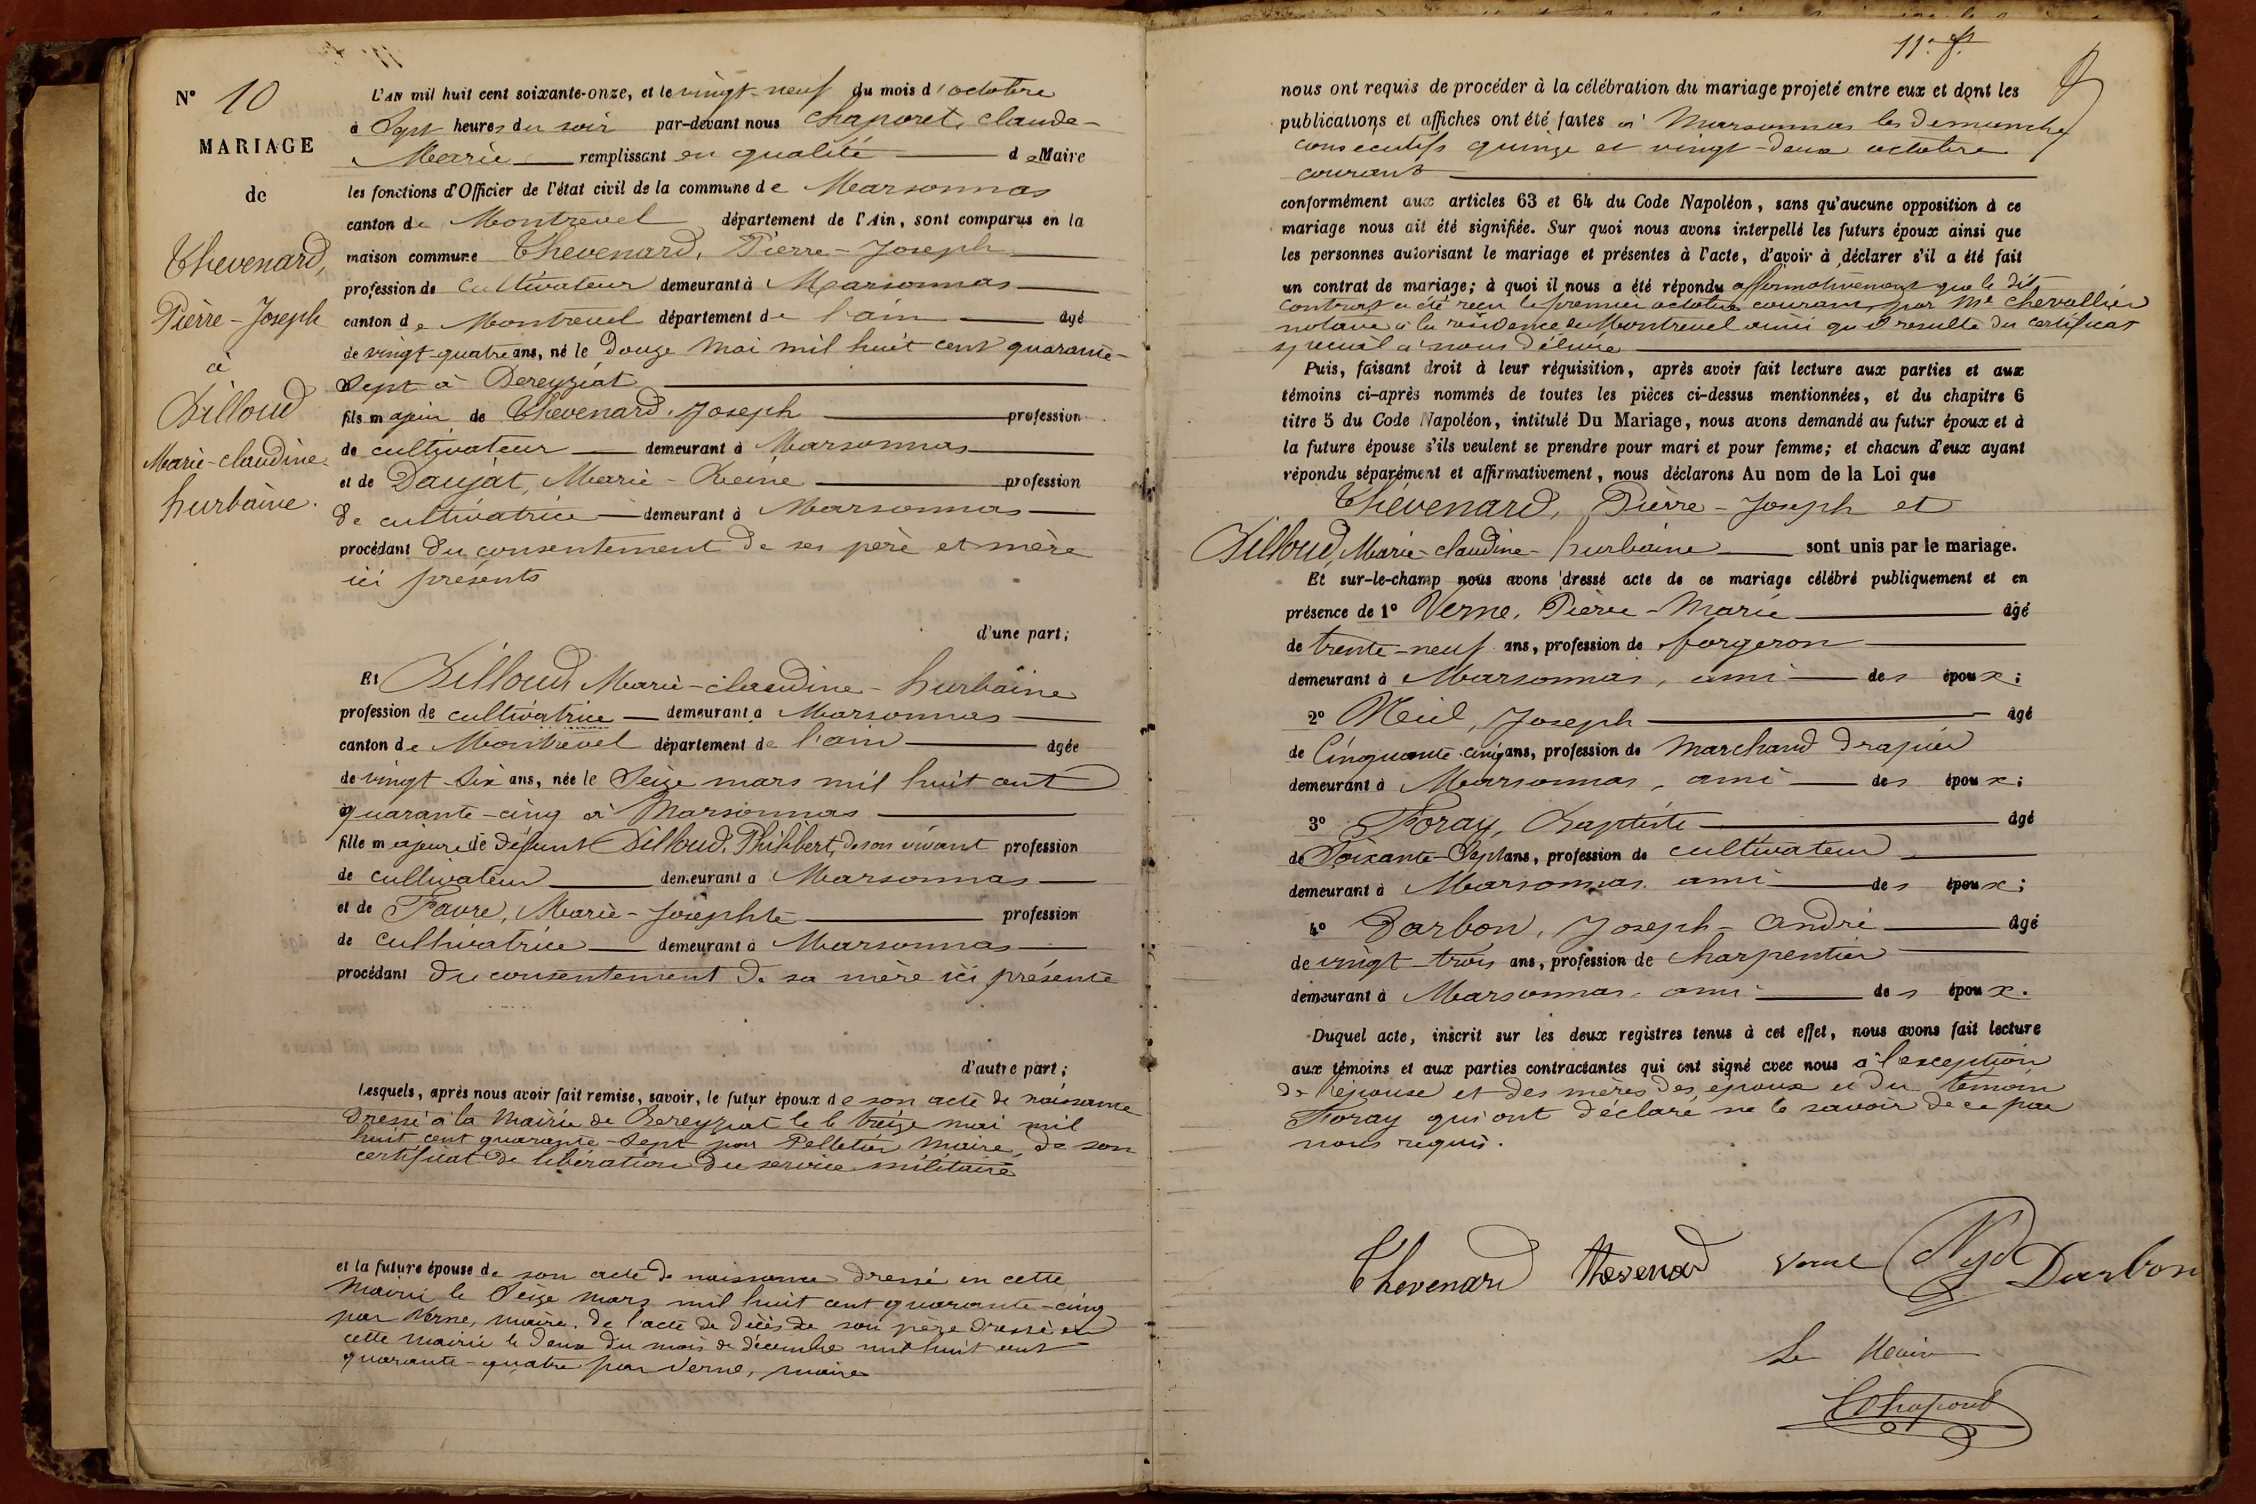 N° 10
MARIAGE
de
Thevenard,
Pierre-Joseph
à
Dilloud
Marie-claudine
hurbaine.
L'AN mil huit cent soixante-onze, et le vingt-neuf du mois d'octobre
à Sept heures du soir par-devant nous Chaporet, claude-
Marie remplissant en qualité de Maire
les fonctions d'Officier de l'état civil de la commune de Marsonnas
canton de Montrevel département de l'Ain, sont comparus en la
maison commune Thevenard, Pierre-Joseph
profession de cultivateur demeurant à Marsonnas
canton de Montrevel département de l'ain âgé
de vingt-quatre ans, né le Douze mai mil huit cent quarante-
Sept à Bereyziat
fils majeur de Thevenard, Joseph profession
de cultivateur demeurant à Marsonnas
et de Daujat, Marie-Reine profession
de cultivatrice demeurant à Marsonnas
procédant du consentement de ses père et mère
ici présents
d'une part;
Et Dilloud Marie-claudine-hurbaine
profession de cultivatrice demeurant à Marsonnas
canton de Montrevel département de l'ain âgée
de vingt-Six ans, née le Seize mars mil huit cent
quarante-cinq à Marsonnas
fille majeure de défunt Dilloud, Philibert, de son vivant profession
de cultivateur demeurant à Marsonnas
et de Favre, Marie-Josephte profession
de cultivatrice demeurant à Marsonnas
procédant du consentement de sa mère ici présente
d'autre part;
Lesquels, après nous avoir fait remise, savoir, le futur époux de son acte de naissance
dressé à la Mairie de Bereyziat le treize mai mil
huit cent quarante-Sept par Pelletier Maire, de son
certificat de libération du service militaire
et la future épouse de son acte de naissance dressé en cette
Mairie le Seize mars mil huit cent quarante-cinq
par Verne, maire, de l'acte de décès de son père dressé en
cette mairie le deux du mois de décembre mil huit cent
quarante-quatre par Verne, maire
11e ft
nous ont requis de procéder à la célébration du mariage projeté entre eux et dont les
publications et affiches ont été faites à Marsonnas les dimanches
consecutifs quinze et vingt-deux octobre
courant
conformément aux articles 63 et 64 du Code Napoléon, sans qu'aucune opposition à ce
mariage nous ait été signifiée. Sur quoi nous avons interpellé les futurs époux ainsi que
les personnes autorisant le mariage et présentes à l'acte, d'avoir à déclarer s'il a été fait
un contrat de mariage; à quoi il nous a été répondu affirmativement que le dit
contrat a été reçu le premier octobre courant, par Me Chevallier
notaire à la résidence de Montrevel ainsi qu'il résulte du certificat
spécial à nous délivré
Puis, faisant droit à leur réquisition, après avoir fait lecture aux parties et aux
témoins ci-après nommés de toutes les pièces ci-dessus mentionnées, et du chapitre 6
titre 5 du Code Napoléon, intitulé Du Mariage, nous avons demandé au futur époux et à
la future épouse s'ils veulent se prendre pour mari et pour femme; et chacun d'eux ayant
répondu séparément et affirmativement, nous déclarons Au nom de la Loi que
Thévenard, Pierre-Joseph et
Dilloud, Marie-claudine-hurbaine sont unis par le mariage.
Et sur-le-champ nous avons dressé acte de ce mariage célébré publiquement et en
présence de 1° Verne, Pierre-Marie âgé
de trente-neuf ans, profession de forgeron
demeurant à Marsonnas, ami des époux;
2° Joseph âgé
de Cinquante-cinq ans, profession de Marchand drapier
demeurant à Marsonnas, ami des époux;
3° Foray, Baptiste âgé
de Soixante-Sept ans, profession de cultivateur
demeurant à Marsonnas, ami des époux;
4° Darbon, Joseph-André âgé
de vingt-trois ans, profession de charpentier
demeurant à Marsonnas, ami des époux.
Duquel acte, inscrit sur les deux registres tenus à cet effet, nous avons fait lecture
aux témoins et aux parties contractantes qui ont signé avec nous à l'exception
de l'épouse et des mères des époux et du témoin
Foray qui ont déclaré ne le savoir de ce par
nous requis.
Thevenard Thevenard Darbon
Le Maire